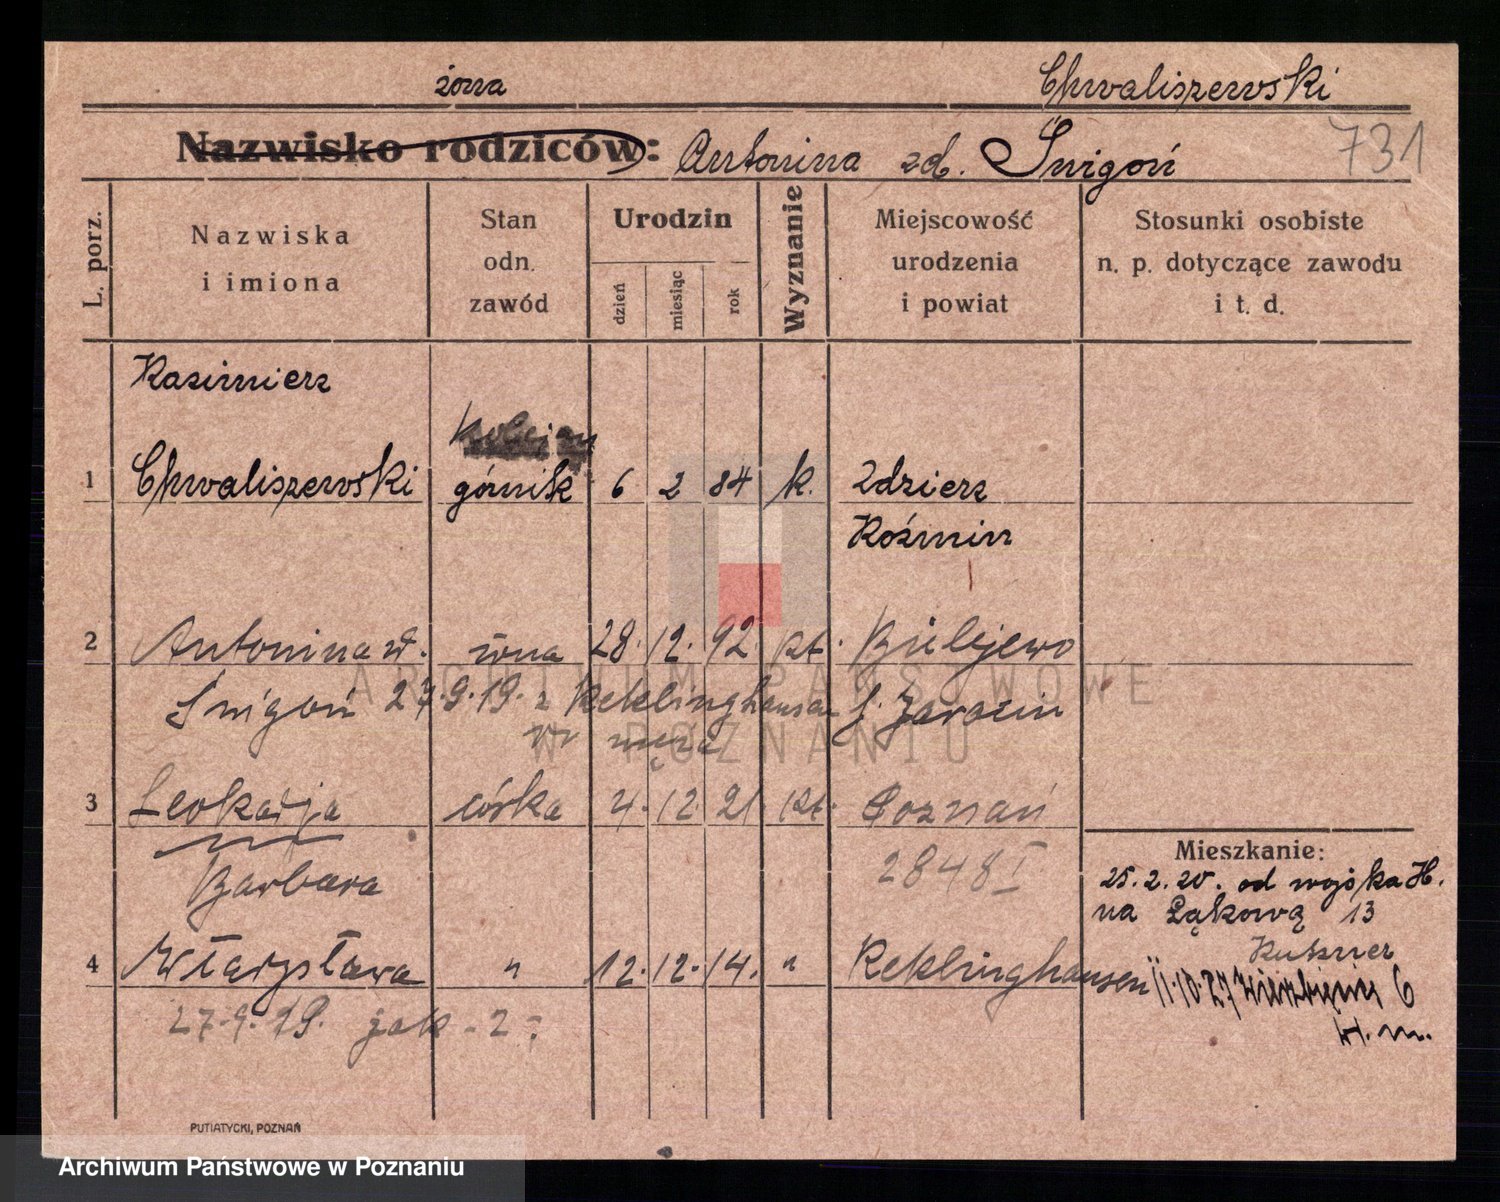 żona
Chwaliszewski
Nazwisko rodziców: Antonina zd. Śnigoń
731
L. porz.
Nazwiska
i imiona
Stan
odn.
zawód
Urodzin
dzień
miesiąc
rok
Wyznanie
Miejscowość
urodzenia
i powiat
Stosunki osobiste
n. p. dotyczące zawodu
i t. d.
Kazimierz
1 Chwaliszewski górnik 6 2 84 k. Zdzierz
Koźmin
2 Antonina 28. 12. 92 kt.
Śnigoń 27.9.19. z Reklinghausen Jarocin
3 Leokadja córka 4. 12. 21 kt. Poznań
Barbara
2848 I
4 Władysława " 12. 12. 14. " Reklinghausen
27.9.19. jak - 2 -
Mieszkanie:
25.2.20. od wojska H.
na Łąkową 13
Kutzner
11.10.27 Wierzbięcice 6
H. m.
PUTIATYCKI, POZNAŃ
ARCHIWUM PAŃSTWOWE
W POZNANIU
Archiwum Państwowe w Poznaniu